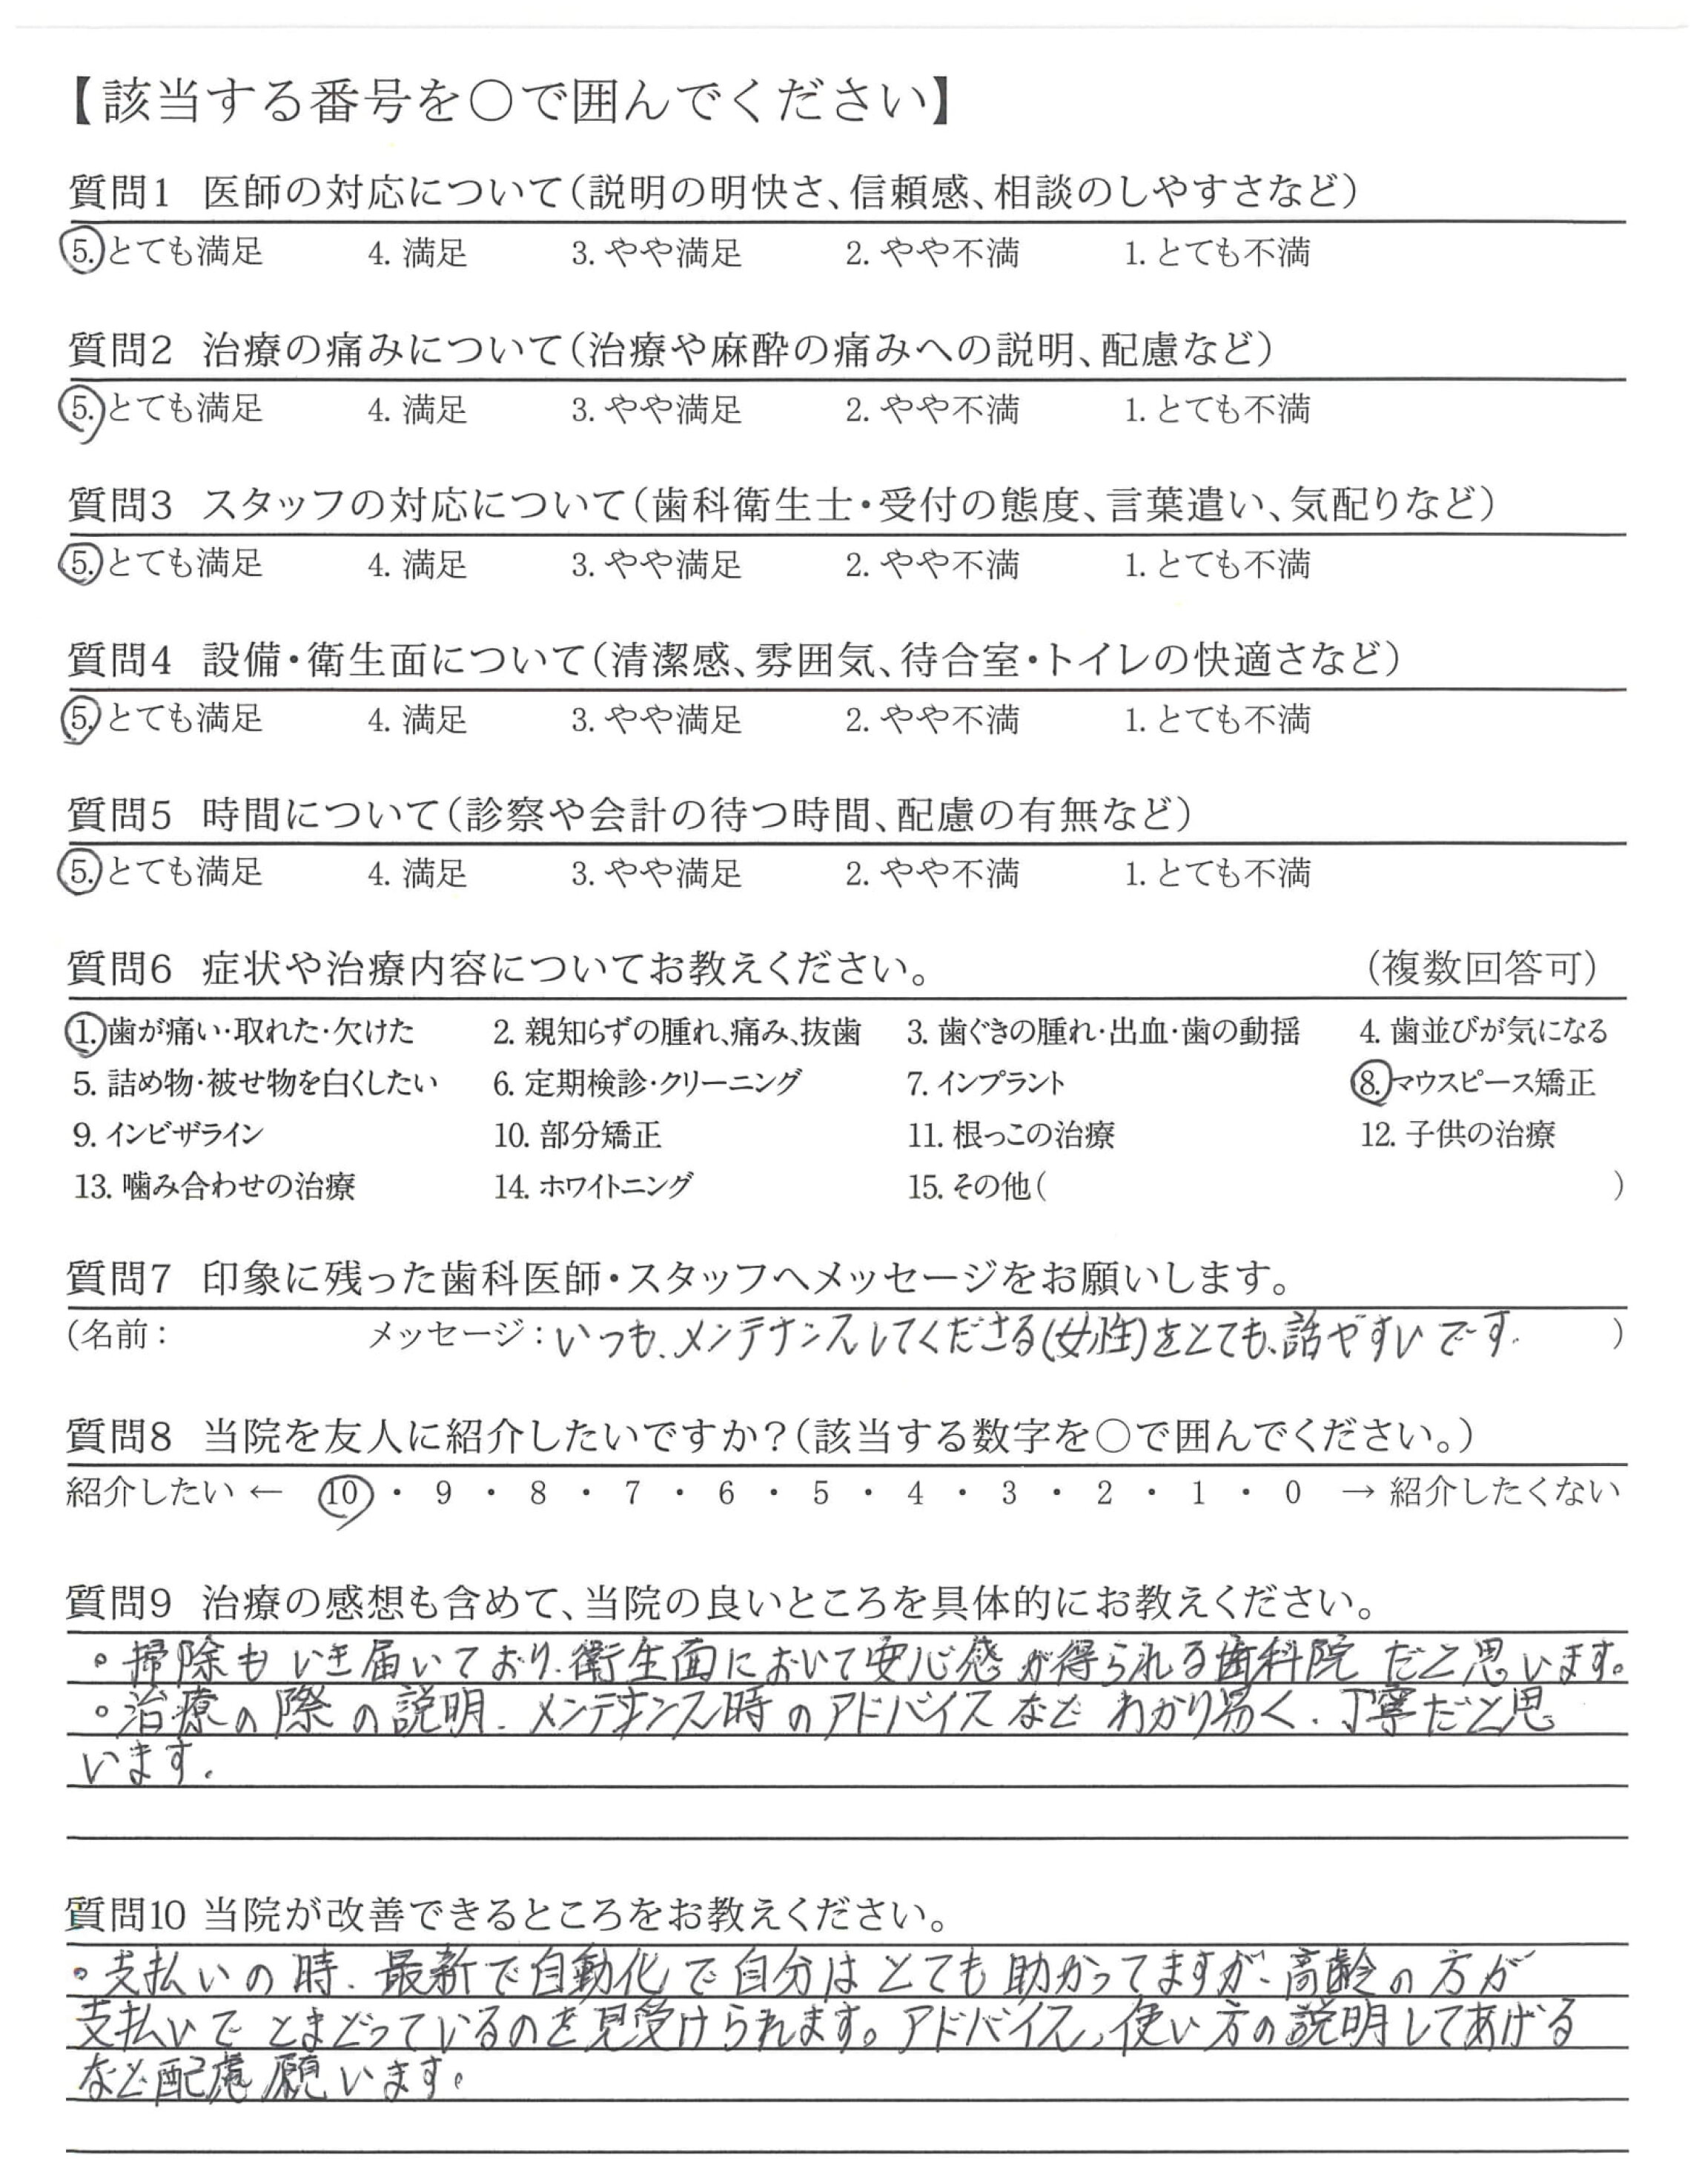 【該当する番号を〇で囲んでください】
質問1 医師の対応について(説明の明快さ、信頼感、相談のしやすさなど)
5. とても満足 4. 満足 3. やや満足 2. やや不満 1. とても不満
質問2 治療の痛みについて(治療や麻酔の痛みへの説明、配慮など)
5. とても満足 4. 満足 3. やや満足 2. やや不満 1. とても不満
質問3 スタッフの対応について(歯科衛生士・受付の態度、言葉遣い、気配りなど)
5. とても満足 4. 満足 3. やや満足 2. やや不満 1. とても不満
質問4 設備・衛生面について(清潔感、雰囲気、待合室・トイレの快適さなど)
5. とても満足 4. 満足 3. やや満足 2. やや不満 1. とても不満
質問5 時間について(診察や会計の待つ時間、配慮の有無など)
5. とても満足 4. 満足 3. やや満足 2. やや不満 1. とても不満
質問6 症状や治療内容についてお教えください。 (複数回答可)
1. 歯が痛い・取れた・欠けた 2. 親知らずの腫れ、痛み、抜歯 3. 歯ぐきの腫れ・出血・歯の動揺 4. 歯並びが気になる
5. 詰め物・被せ物を白くしたい 6. 定期検診・クリーニング 7. インプラント 8. マウスピース矯正
9. インビザライン 10. 部分矯正 11. 根っこの治療 12. 子供の治療
13. 噛み合わせの治療 14. ホワイトニング 15. その他( )
質問7 印象に残った歯科医師・スタッフへメッセージをお願いします。
(名前: メッセージ:いつも、メンテナンスしてくださる(女性)をとても、話やすいです. )
質問8 当院を友人に紹介したいですか?(該当する数字を〇で囲んでください。)
紹介したい ← 10 ・ 9 ・ 8 ・ 7 ・ 6 ・ 5 ・ 4 ・ 3 ・ 2 ・ 1 ・ 0 → 紹介したくない
質問9 治療の感想も含めて、当院の良いところを具体的にお教えください。
。掃除もいき届いており、衛生面において安心感が得られる歯科院だと思います。
。治療の際の説明、メンテナンス時のアドバイスなどわかり易く、丁寧だと思
います.
質問10 当院が改善できるところをお教えください。
。支払いの時、最新で自動化で自分はとても助かってますが、高齢の方が
支払いでとまどっているのを見受けられます。アドバイス、使い方の説明してあげる
など配慮願います。